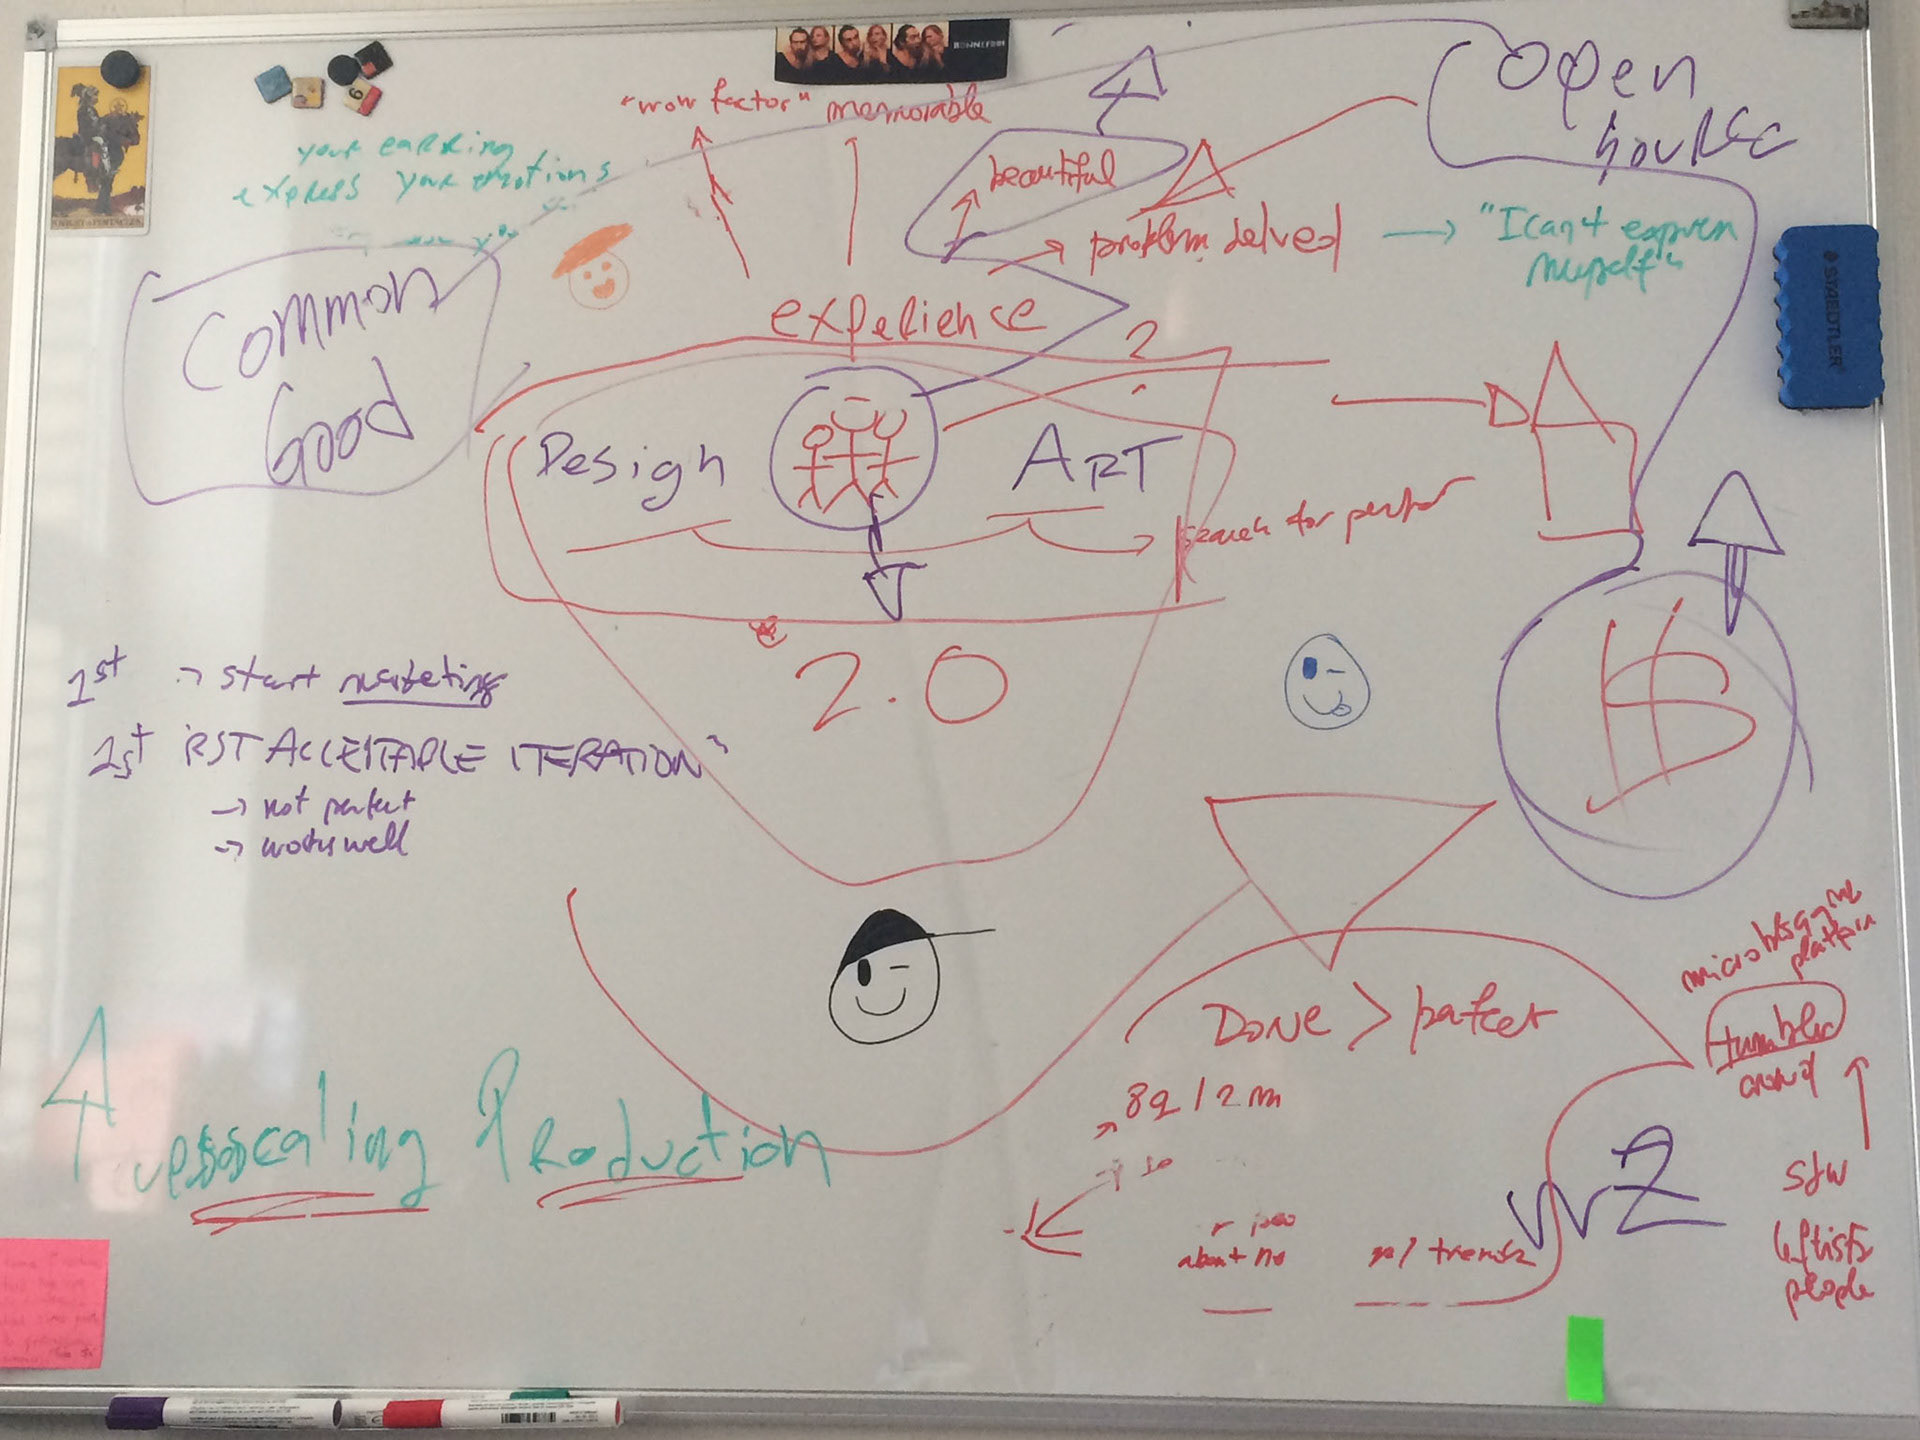 "wow factor" memorable
Open
source
your earring
express your emotions
beautiful
problem solved
"I can't express
myself"
Common
Good
experience
?
Design
ART
search for perfect
STAEDTLER
KNIGHT of PENTACLES
2.0
1st → start marketing
1st
ACCEPTABLE ITERATION"
→ not perfect
→ works well
$
microblogging
platform
DONE > perfect
tumblr
crowd
8g / 2m
scaling Production
v2
SJW
leftists
people
about no
w/ trends